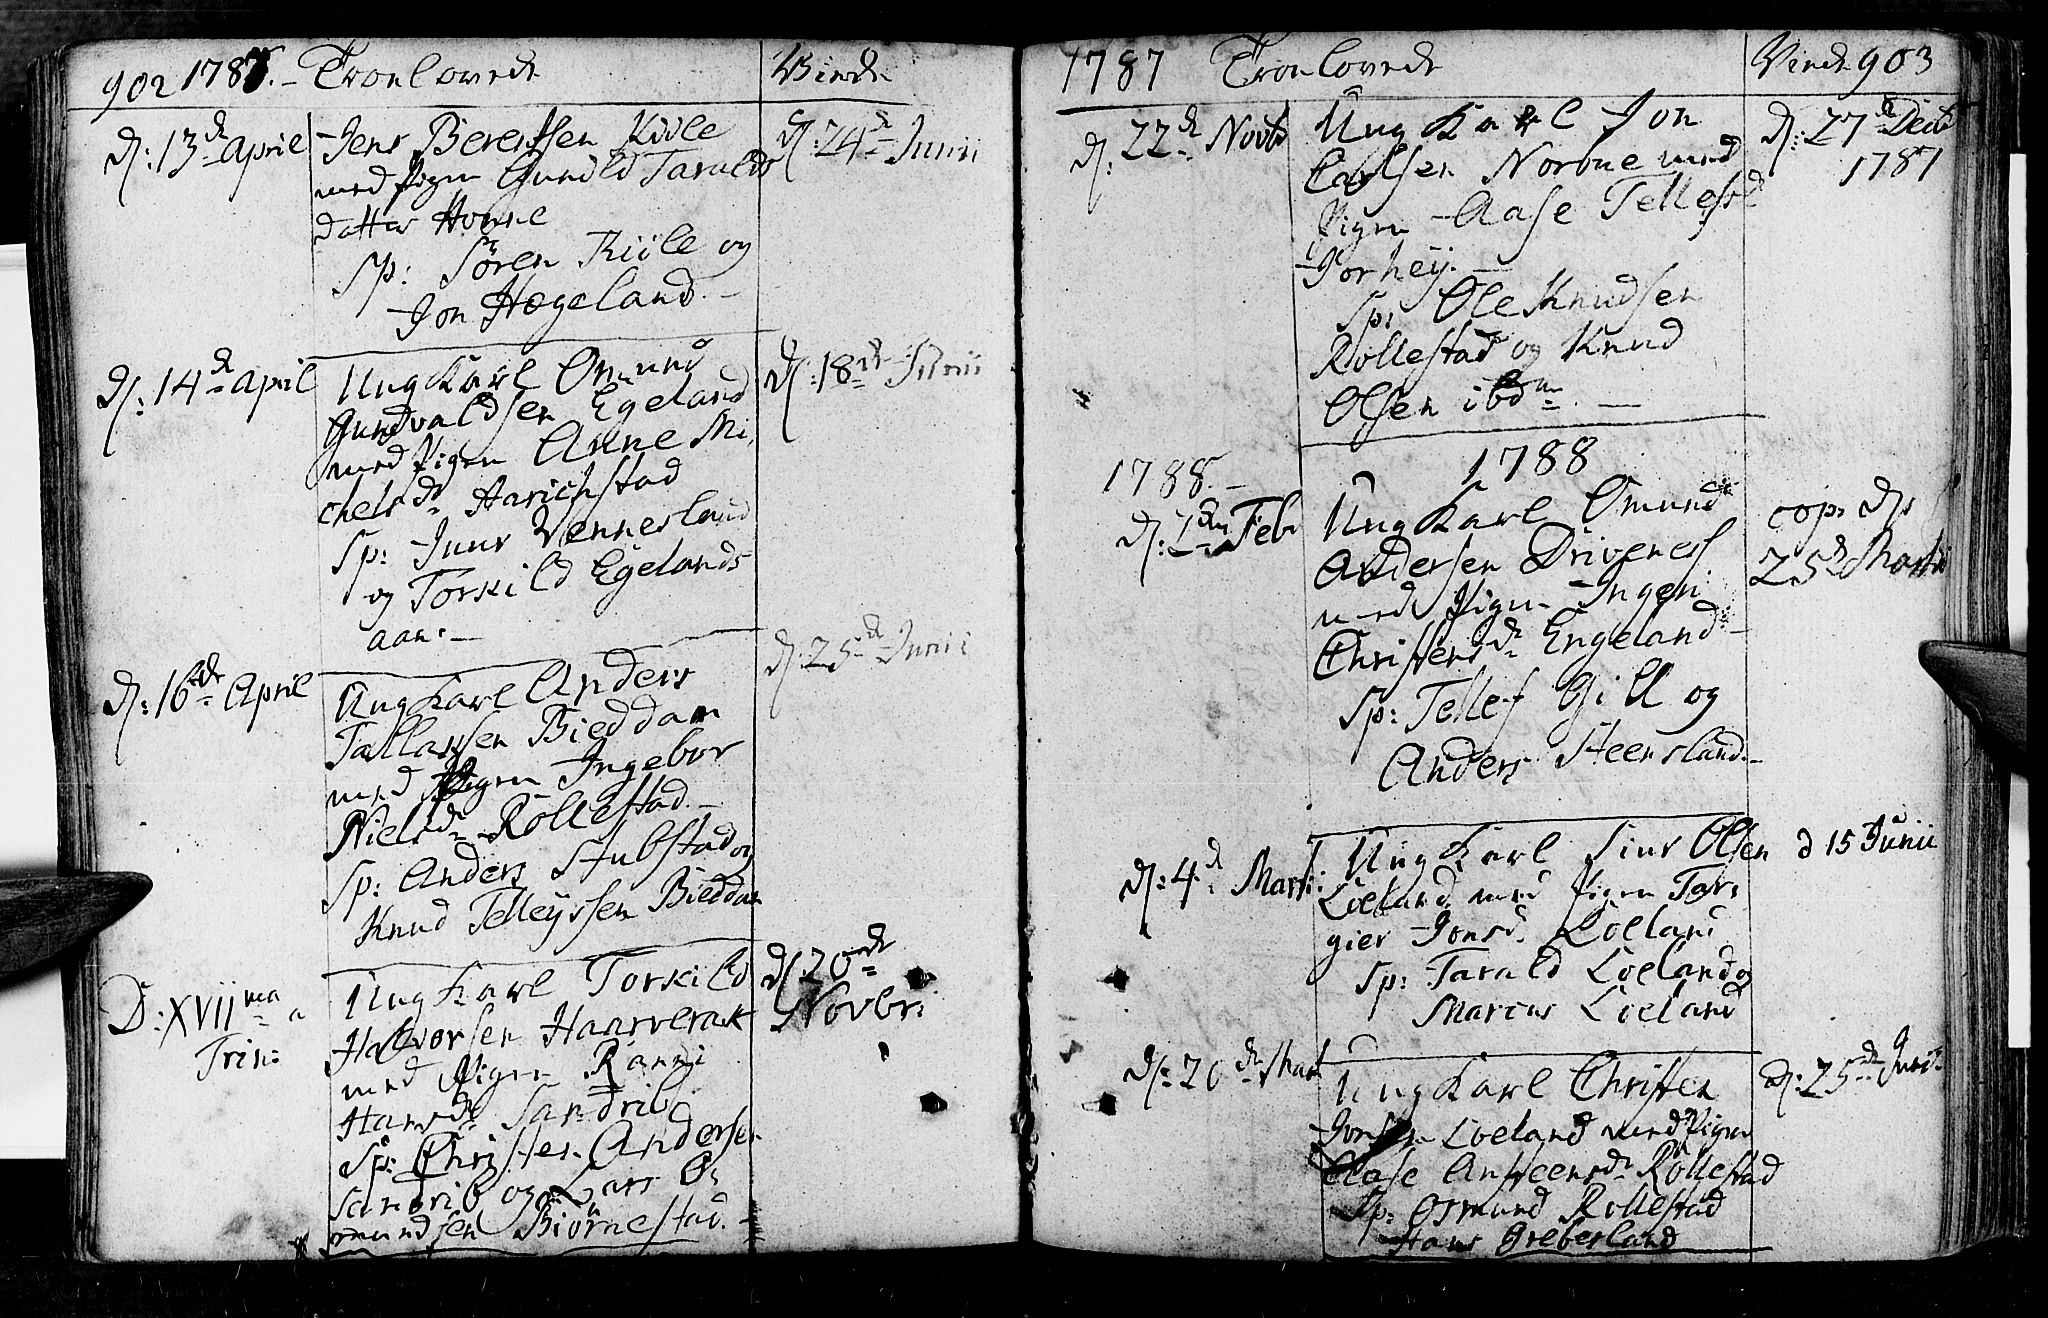 902 1787. – Troelovede Viede
d: 13de April
Jens Berentsen Kiile
med Pigen Gunild Taralds
datter Honne
Sp: Sören Kiile og
Jon Hægeland. –
d: 24de Junii
d: 14de April
Ung Karl Omund
Gundvaldsen Egeland
med Pigen Anne Mi
chelsdr Harichstad
Sp: Juur Vennersland
og Torkild Egelands
aan. –
d: 18de Junii
d: 16de April
Ung Karl Anders
Tallaksen Bieddam
med Pigen Ingebor
Nielsdr Röllestad. –
Sp: Anders Stubstad og
Knud Telleyssen Bieddam
d: 25de Junii
D: XVIIma a
Trin:
Ung Karl Torkild
Halvorsen Haarverak
med Pigen Ranni
Hansdr Sandrib
Sp: Christen Andersen
Sandrib og Lars O
mundsen Biörnestad. –
d 20de
Novbr:
1787 Troelovede Viede 903
d: 22de Novbr
Ung Karl Jon
Carlsen Norbue med
Pigen Aase Tellefsd
Jorhey. –
Sp: Ole Knudsen
Röllestad og Knud
Olsen ibdm. –
d: 27de Decbr
1787
1788
1788. –
d: 1den Febr
Ung Karl Omund
Andersen Drivenes
med Pigen Ingeri
Christensdr Engeland –
Sp: Tellef Gill og
Anders Steensland. –
cop. d:
25de Martii
d: 4de Martii
Ung Karl Siur Olsen
Loeland med Pigen Tor
gier Jonsd. Loeland
Sp: Tarald Loeland og
Marcus Loeland
d 15 Junii
d: 20de Mart
Ung Karl Christen
Jonsen Loeland med Pigen
Aase Ansteensdr Röllestad
Sp: Osmund Röllestad
Hans Greberland
d: 25de Junii